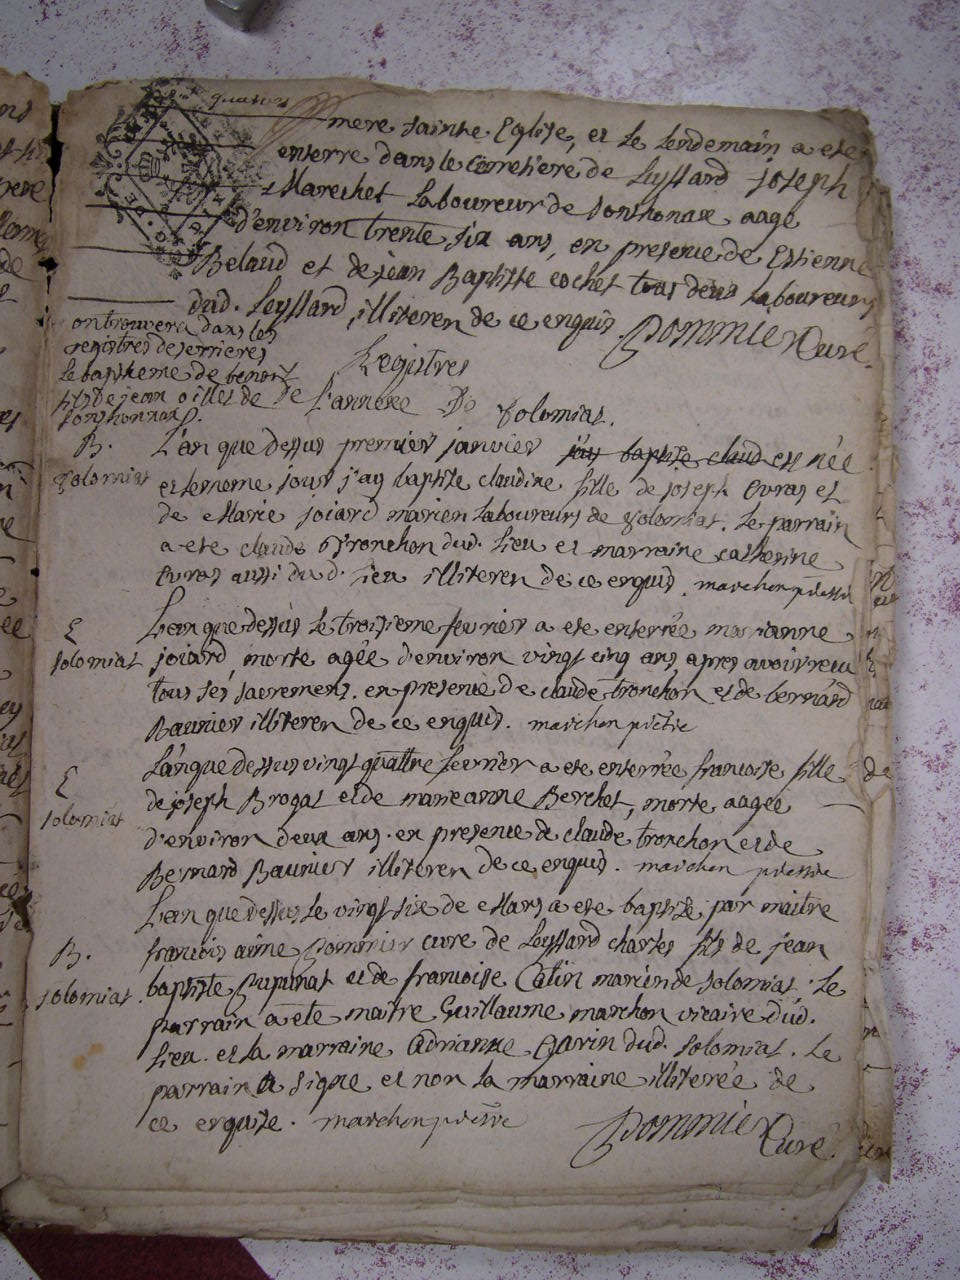 quatre
mere sainte Eglise, et le lendemain a ete
enterre dans le cemetiere de Leyssard joseph
Marechet Laboureur de sonthonax aage
d'environ trente six ans, en presence de Estienne
Belaud et de jean Baptiste cochet tous deux laboureurs
dud. Leyssard, illiteren de ce enquis Dommier Curé
on trouvera dans les
registres deserrieres
le baptheme de benoit
fils de jean oilles de
sonthonnax
Registres
De L'annexe De Solomias.
B.
Solomiat
L'an que dessus premier janvier j'ay baptize claud est née
et le meme jour j'ay baptize claudine fille de joseph Evras et
de Marie joiard marien laboureurs de Solomiat. Le parrain
a ete claude tronchon dud. Lieu et marraine catherine
Evras aussi du d. Lieu illiteren de ce enquis. marchon prestre
E
solomiat
L'an que dessus le troisieme fevrier a ete enterrée marianne
joiard, morte agée d'environ vingt cinq ans, apres avoir recu
tous ses sacremens. en presence de claude tronchon et de bernard
Baunier illiteren de ce enquis. marchon prêtre
E
solomiat
L'an que dessus vingt quattre fevrier a ete enterrée francoise fille
de joseph Brogat et de marie anne Berchet, morte, aagée
d'environ deux ans. en presence de claude tronchon et de
Bernard Baunier illiteren de ce enquis. marchon prestre
B.
solomiat.
L'an que dessus le vingt six de Mars a ete baptizé par maitre
francois aime Dommier curé de Leyssard charles fils de jean
baptiste Pupunat et de francoise Calin marien de Solomiat. Le
parrain a été maitre Guillaume marchon vicaire dud.
Lieu. et la marraine Adrianne Gavin dud. Solomiat. Le
parrain a signe et non la marraine illiterée de
ce enquise. marchon prêtre Dommier Curé.